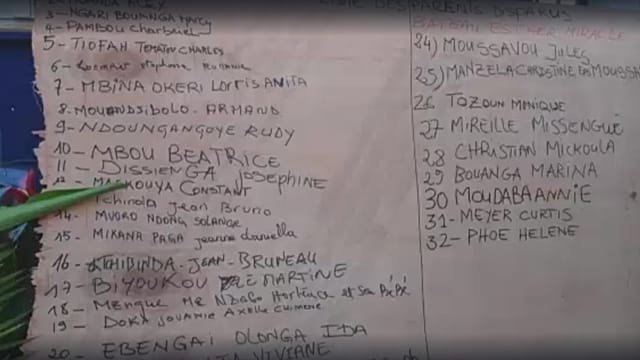 3- NGARI BOUANGA MARCY
4- PAMBOU Charbariel
5- TIOFAH TEMATIO CHARLES
6- stephane
7- MBINA OKERI LORTIS ANITA
8- MOUANDJIBOLO - ARMAND
9- NDOUNGANGOYE RUDY
10- MBOU BEATRICE
11- DISSIENGA JOSEPHINE
CONSTANT
Tchinda Jean Bruno
14- MVORO NDONG SOLANGE
15- MIKANA PAGA jeanne danuella
16- TCHIBINDA - JEAN - BRUNEAU
17- BIYOUKOU MARTINE
18- Mengue Me Ndogo Hortence et son Bébé
19- DOKA JOVANIE AXELLE
20- EBENGAI OLONGA IDA
VIVIANE
DES PARENTS DISPARUS
ESTHER MIRACLE
24) MOUSSAVOU JULES
25) MANZELA CHRISTINE MOUSSA
26 TOZOUN MONIQUE
27 MIREILLE MISSENGUE
28 CHRISTIAN MICKOULA
29 BOUANGA MARINA
30 MOUDABA ANNIE
31- MEYER CURTIS
32- PHOE HELENE